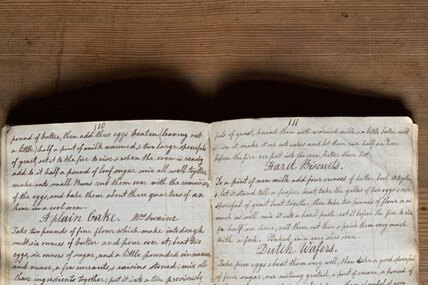 110
pound of butter, then add three eggs beaten (leaving out
a little) half a pint of milk warmed & two large spoonfuls
of yeast, set it to the fire to rise & when the oven is ready
add to it half a pound of loaf sugar, mix all well together
make into small Buns, rub them over with the remainder
of the eggs, and bake them about three quarters of an
hour in a cool oven.
A plain Cake. Mrs Swaine
Take two pounds of fine flour which make into dough
melt six ounces of butter and pour over it; beat two
eggs, six ounces of sugar, and a little pounded cinnamon
and mace, a few currants, & raisins stoned; mix all
these ingredients together; put it into a tin previously
111
of yeast, knead them with warmed milk & a little butter melt
in it make it up into cakes and let them rise half an hour
before the fire, or put into the oven rather than hot.
Hard Biscuits.
To a pint of new milk add four ounces of butter, boil it together
& let it stand till a proper heat, take the yolks of two eggs & a
spoonful of yeast beat together, then take two pounds of flour & as
much as will mix it into a hard paste, set it before the fire to rise
for half an hour, roll them out thin & prick them very much
with a fork. Baked in a very slow oven.
Dutch Wafers.
Take four eggs, beat them very well, then take a good spoonful
of fine sugar, one nutmeg grated, a pint of cream, a pound of